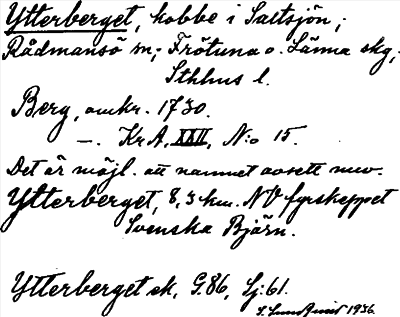 Ytterberget, kobbe i Saltsjön,;
Rådmansö sn; Frötuna o. Länna skg,
Sthlms l.
Berg, omkr. 1730.
—. Kr A, XXII, N:o 15.
Det är möjl. att namnet avsett nuv.
Ytterberget, 8,3 km. NV fyrskeppet
Svenska Björn.
Ytterberget ek, G:86, Sj:61.
1936.